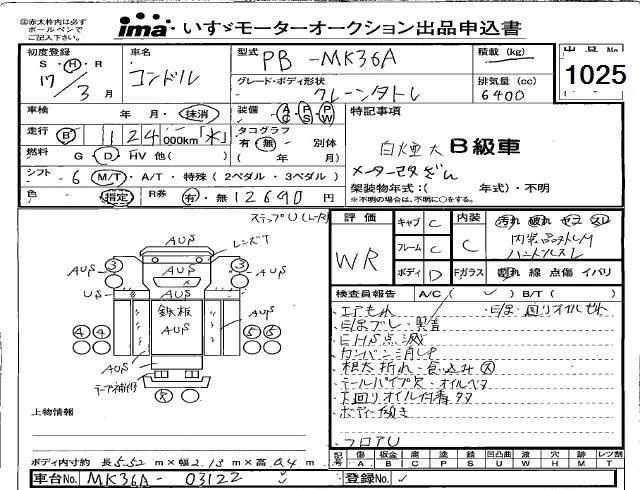 ㊟赤太枠内は必ず
ボールペンで
ご記入下さい。
ima いすゞモーターオークション出品申込書
初度登録 S・H・R 17/3月
車名 コンドル
型式 PB-MK36A
積載(kg)
出品No. 1025
グレード・ボディ形状 クレーンタトレ
排気量(cc) 6400
車検 年 月・抹消
装備 AC PS PW
特記事項
走行 B 124,000km「水」
タコグラフ 有・無 別体 ( 年 月)
白煙大 B級車
燃料 G・D・HV 他( )
メーター改ざん
シフト 6 M/T・A/T・特殊(2ペダル・3ペダル)
架装物年式:( 年式)・不明
※不明の場合は、不明に○をする。
色 指定 R券 有・無 12690円
ステップU(L-R)
評価 WR
キャブ C
フレーム C
ボディ D
内装 C
汚れ 破れ ヤコ スレ
Fガラス 割れ 線 点傷 イバリ
AUS
レンズT
AUS ③ AUS ③ AUS
US AUS
鉄板
AUS AUS AUS
④④ ⑤⑤
AUS
テープ補修
検査員報告 A/C( ✓ ) B/T( )
・エアもれ
・E/g 回りオイルもれ
・E/gブレ・異音
・EHS点滅
・カンバン消し
・根太折れ・
・テールパイプ欠・オイルベタ
・下回りオイル付着
・ボディー傾き
・フロアU
上物情報
ボディ内寸約 長5.52m×幅2.13m×高0.4m
記号 傷 A 板金 B 腐 C 塗 P 錆 S 凹凸曲 U 波 W 穴 H 跡 M レンツ割 T
車台No. MK36A-03122
登録No.